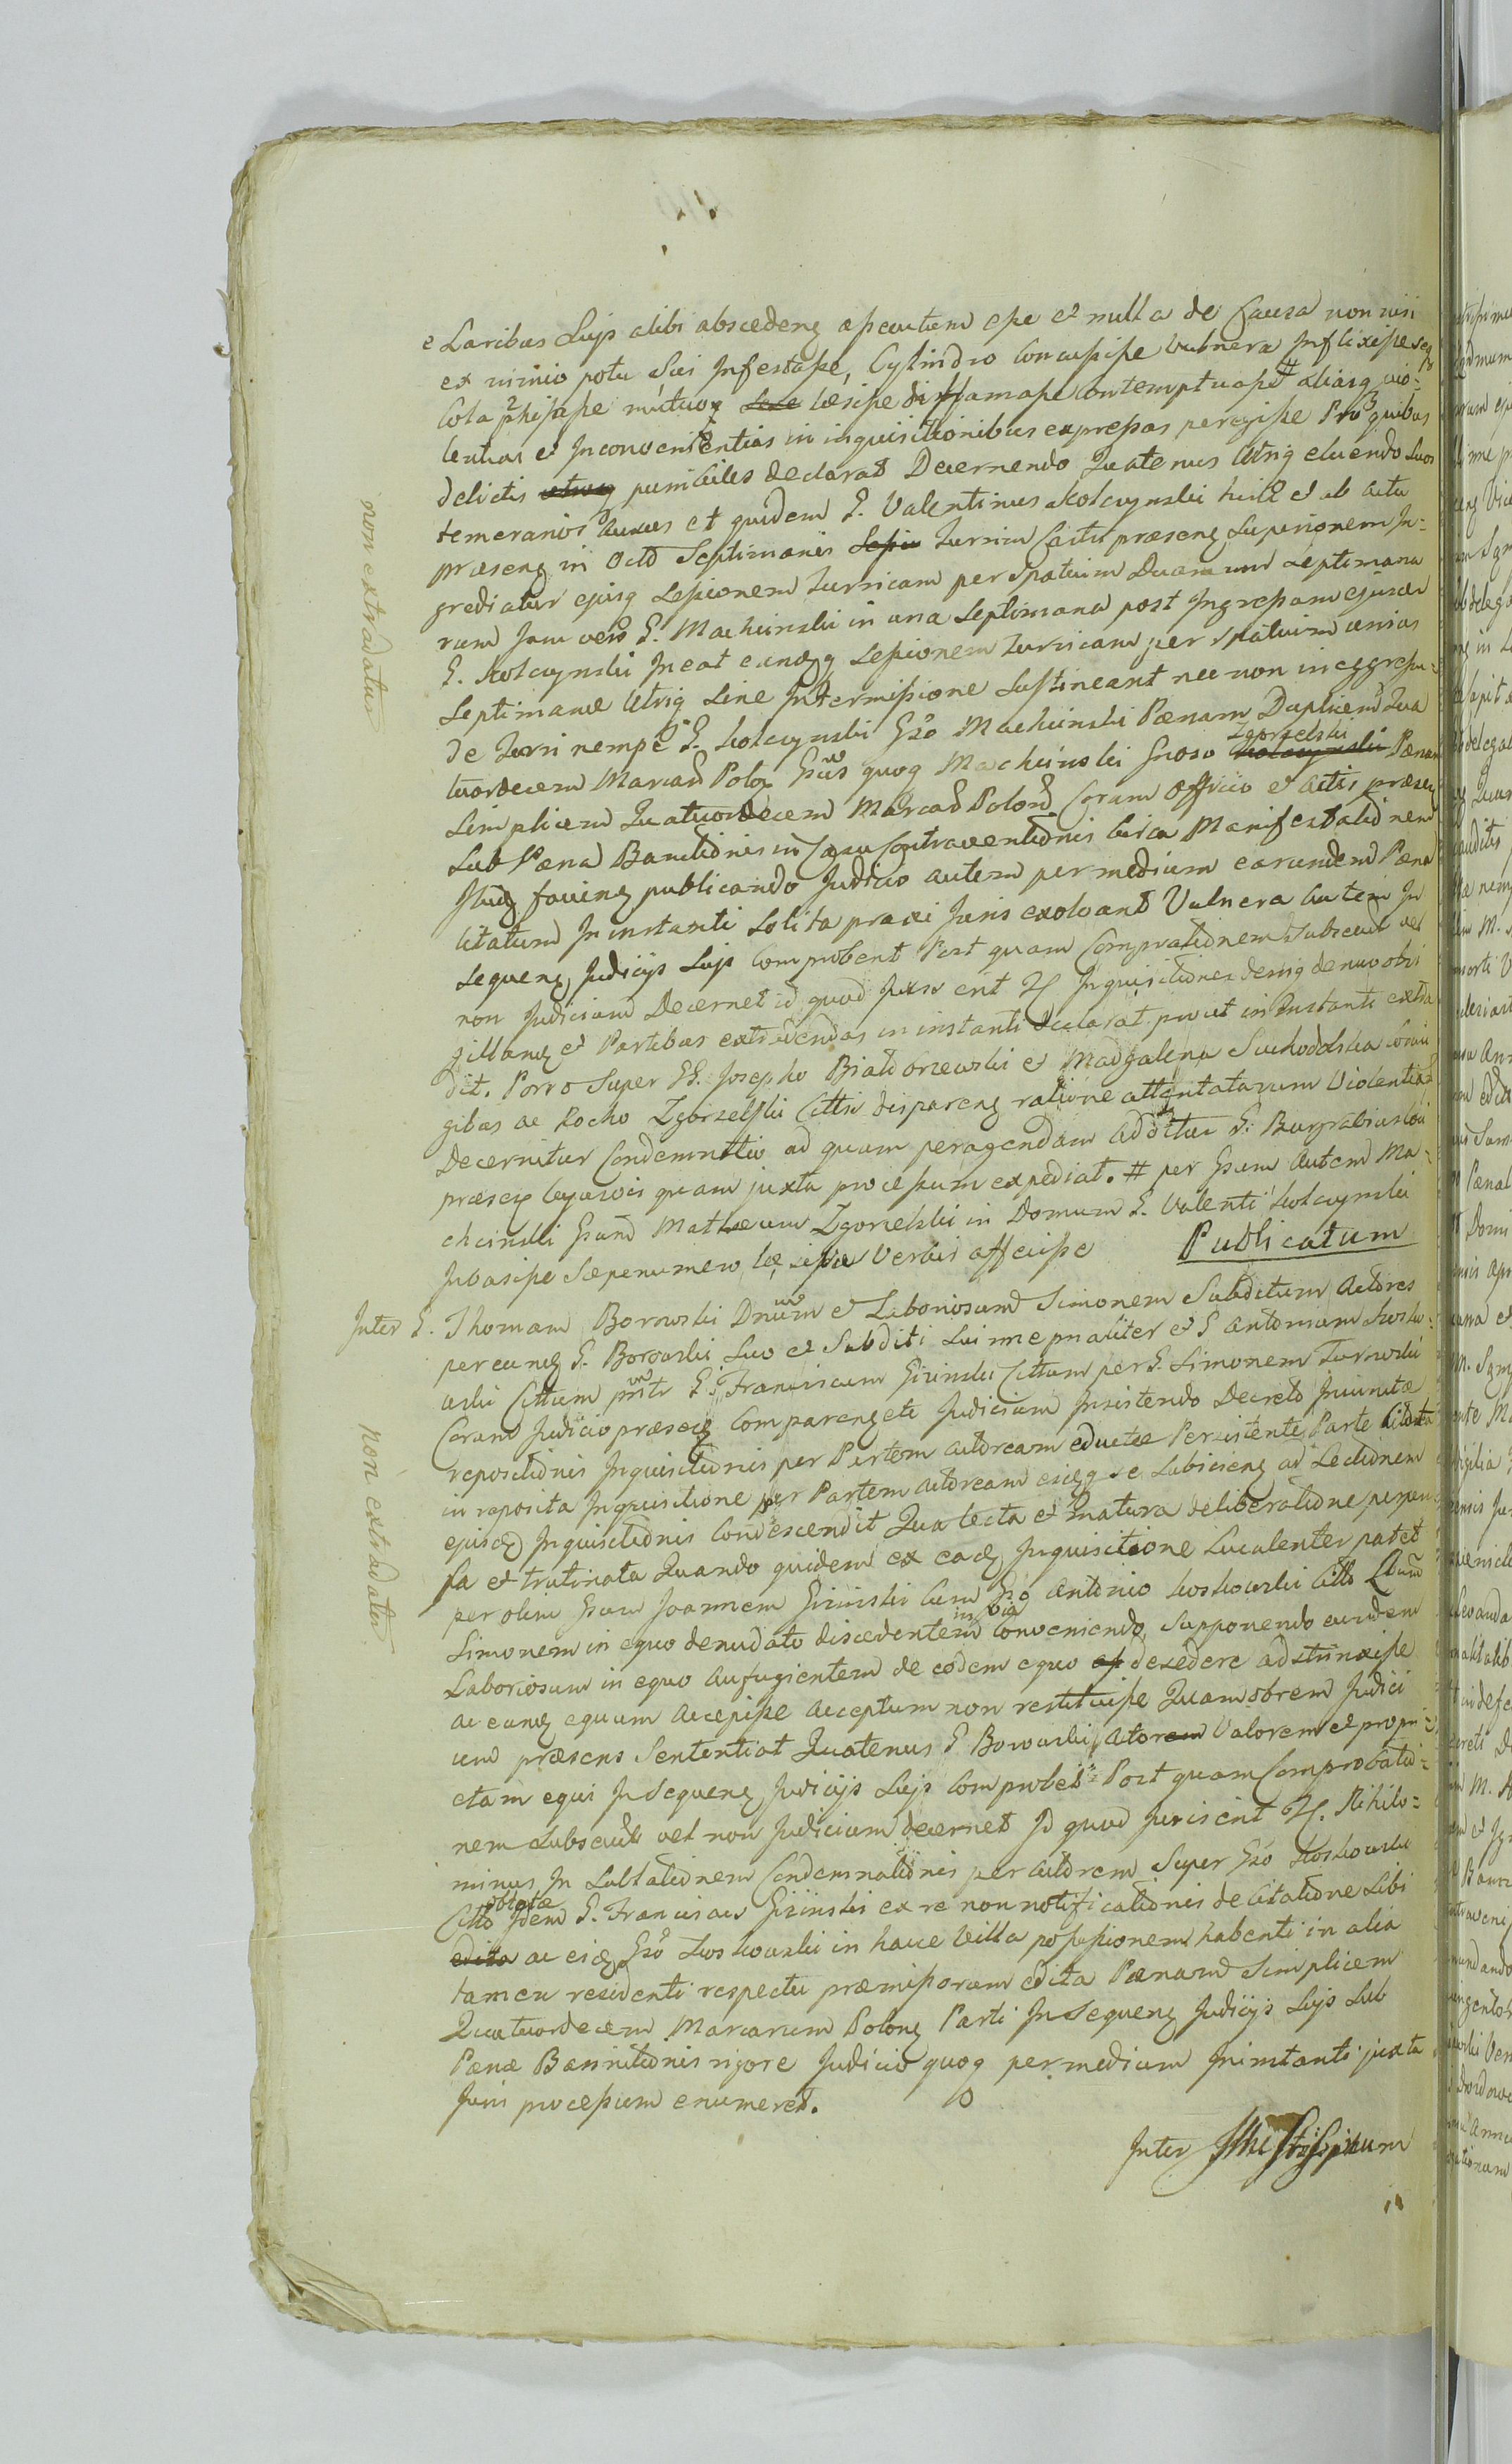 e Laribus Suis alibi abscedens assecutum esse et nulla de Causa non nisi
ex nimio potu Sui Infestasse, Cylindro Concussisse vulnera Inflixisse
Colaphisasse mutuoq læsisse diffamasse contemptuasse # aliasq vio-
lentias et Inconvenientias in inquisitionibus expressas peregisse Pro quibus
delictis punibiles declarat Decernendo Quatenus Utriq eluendo Suos
temerarios ausus et quidem G. Valentinus Kolczynski hic et ab actu
præsenq in Octo Septimanis Turrim Castri præsenq Superiorem In-
grediatur ejusq Sessionem turricam per Spatium Duarum Septimana
rum Jam vero G. Machcinski in una Septimana post Ingressam ejusdem
G. Kolczynski Ineat eandq Sessionem turricam per spatium unius
Septimanæ Utriq Sine Intermissione Sustineant nec non in eggressu
de Turri nempe G. Kolczynski Gso Machcinski Pænam Duplicem Qua
tuordecem Marcar Polon Gsus quoq Machcinski Gneroso Zgorzelski Pænam
Simplicem Quatuordecem Marcar Polon Coram Officio et Actis præsen
Sub Pæna Bannitionis in Casu Contraventionis circa Manifestationem
publicando Judicio autem per medium earundem Pæna
litatum In instanti Solita praxi Juris exolvant Vulnera autem In
sequenq Judicijs Suis Comprobent Post quam Comprobationem Subsecut vel
non Judicium Decernet id quod Juris erit Inquisitiones deniq denuo obsi
gillanq et Partibus extradendas in instanti declarat prout in Instanti extra
dit. Porro Super GG. Josepho Białobrzewski et Magdalena Suchodolska Conju
gibus ac Rocho Zgorzelski Cittis disparenq ratione attentatarum Violentiar
Decernitur Condemnatio ad quam peragendam addittur G. Burgrabius loci
præseq cujusvis quam juxta processum expediat. # per Gsum Autem Ma-
chcinski Gsum Mathæum Zgorzelski in Domum G. Valenti Kolczynski
Invasisse Sæpenumero læsisse Verbis affecisse Publicatum
Inter G. Thomam Borowski Dnum et Laboriosum Simonem Subditum Actores
per eunq G. Borowski Suo et Subditi Sui nne prsaliter et G Antonium Kosko-
wski Cittum prsntr G. Franciscum Giżinski Cittum per G. Simonem Turowski
Coram Judicio præseq Comparenq etc Judicium Insistendo Decreto
repositionis Inquisitionis per Partem Actoream eductæ Persistente Parte Citata
in reposita Inquisitione per Partem Actoream eidq se Subiicienq ad Lectionem
ejusdq Inquisitionis Condescendit Qua lecta et matura deliberatione perpen
sa et trutinata Quando quidem ex eadq Inquisitione Luculenter patet
per olim Gsum Joannem Giżinski cum Gso Antonio Koskowski Citto Lsum
Simonem in equo denudato discedentem in via Conveniendo, Supponendo eundem
Laboriosum in equo aufugientem de eodem equo desedere adstrinxisse
ac eunq equum Accepisse Acceptum non restituisse Quamobrem Judici
um præsens Sententiat Quatenus G Borowski Actorem Valorem et propri-
etam equi In Sequenq Judicijs Suis Comprobet Post quam Comprobatio-
nem Subsecut vel non Judicium decernet Id quod Juris erit. Nihilo-
minus In Sublationem Condemnationis per Actorem Super Gso Koskowski
Citto oblatæ Idem G. Franciscus Giżinski ex re non notificationis de Citatione Sibi
edita ac eidq Gso Koskowski in hacce Villa possessionem habenti in alia
tamen residenti respectu præmissorum edita Pænam Simplicem
Quatuordecem Marcarum Polonq Parti In Sequenq Judicijs Suis Sub
Pænæ Bannitionis rigore Judicio quoq per medium In instanti juxta
Juris processum enumeret.
Inter
non extradatur
non extradatur